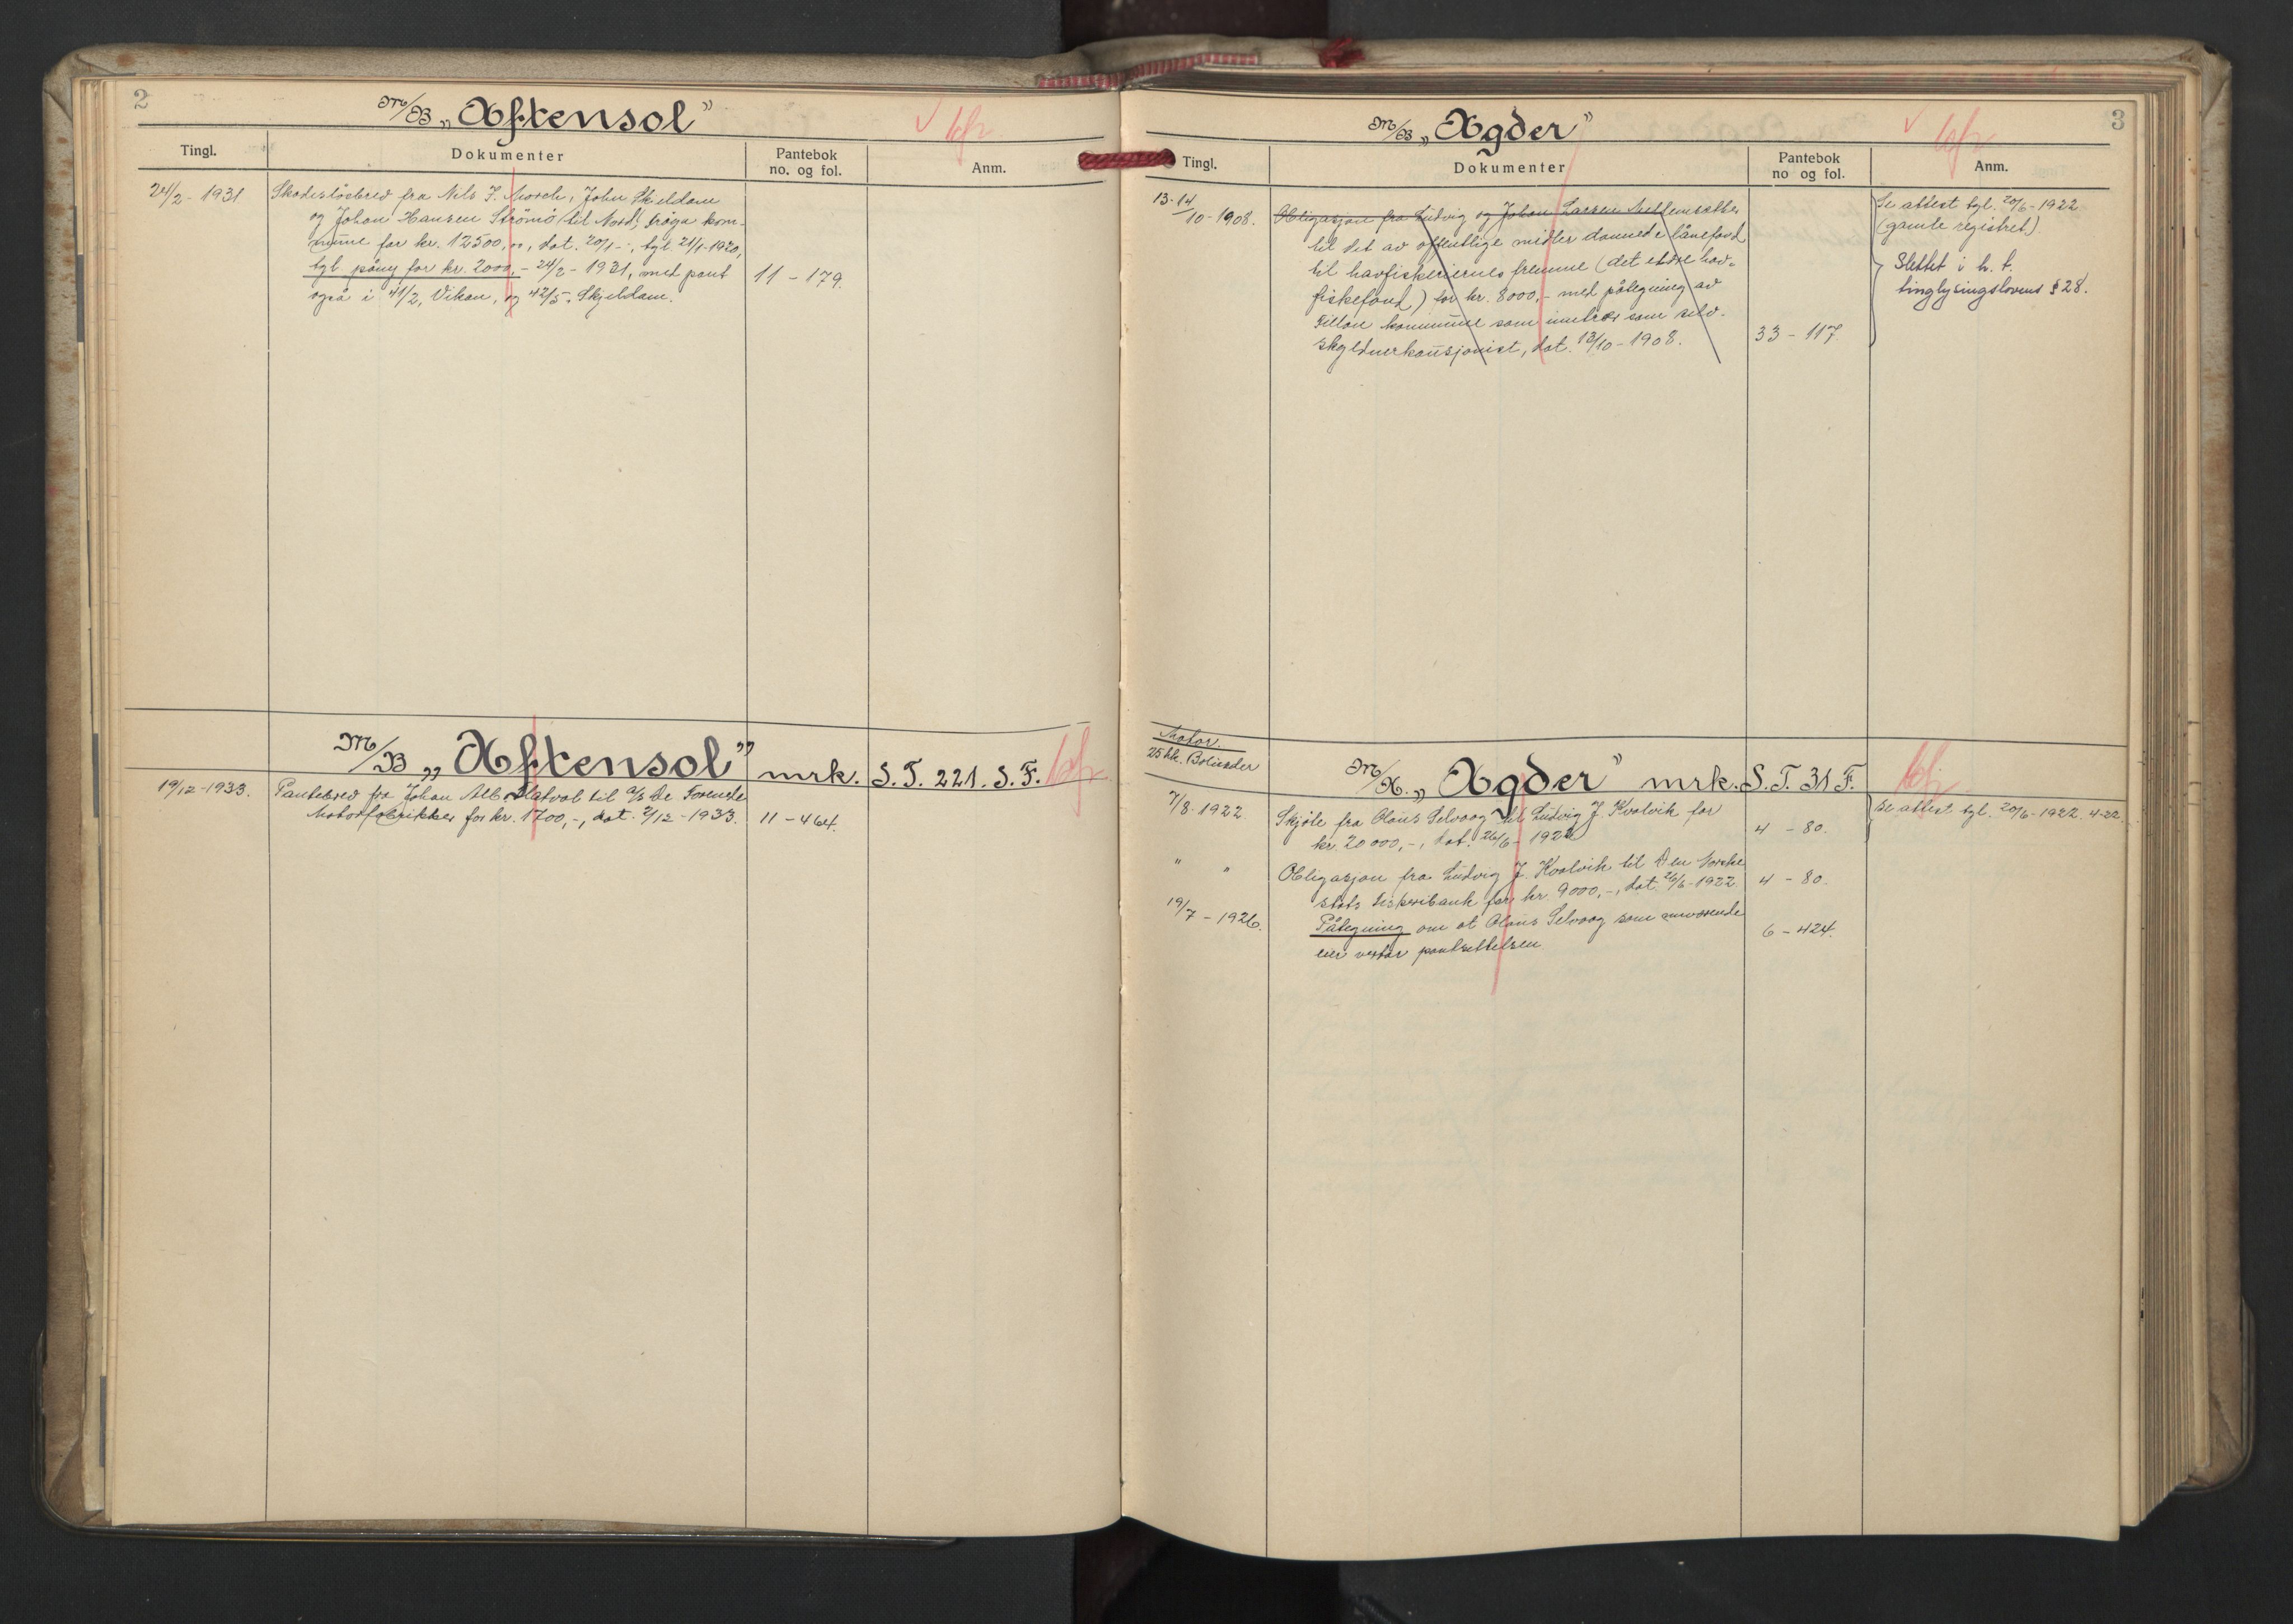 2
M/B „Aftensol”
Tingl.
Dokumenter
Pantebok
no. og fol.
Anm.
24/2 - 1931
Skadesløsbrev fra Nils J. Morch, John Skjeldam
og Johan Hansen Strömö til Nord-Fröya kom-
mune for kr. 12500,00, dat. 20/1 -, tgl. 21/1-1920,
tgl. påny for kr. 2000,- 24/2 - 1931, med pant
også i 41/2, Vikan, og 42/5, Skjeldam.
11 - 179.
M/B „Aftensol” mrk. S.T. 221. S.F.
19/12-1933.
Pantebrev fra Johan Alb. Slatval til A/S De Forenede
Motorfabrikker for kr. 1700,-, dat. 2/12 - 1933.
11 - 464.
3
M/B „Agder”
Tingl.
Dokumenter
Pantebok
no og fol.
Anm.
13-14/10-1908.
Obligasjon fra Ludvig og Johan Larsen
til det av offentlige midler dannede lånefond
til havfiskeriernes fremme (det eldre hav-
fiskefond) for kr. 8000,- med påtegning av
Fillan kommune som inntrær som selv-
skyldnerkausjonist, dat. 13/10 - 1908.
33 - 117.
Se attest tgl. 20/6-1922
(gamle registret)
Slettet i h. t.
tinglysingslovens § 28.
Motor.
25 hk. Bolinder
M/K. „Agder” mrk. S.T. 31 F.
7/8-1922
Skjöte fra Olaus Selvaag til Ludvig J. Kvalvik for
kr. 20 000,-, dat. 26/6 - 1922
4 - 80.
Se attest tgl. 20/6-1922. 4-22.
" "
Obligasjon fra Ludvig J. Kvalvik til Den Norske
stats fiskeribank for kr. 9000,-, dat. 26/6-1922.
4 - 80.
19/7 - 1926.
Påtegning om at Olaus Selvaag som nuværende
eier vedtar pantsettelsen.
6 - 424.